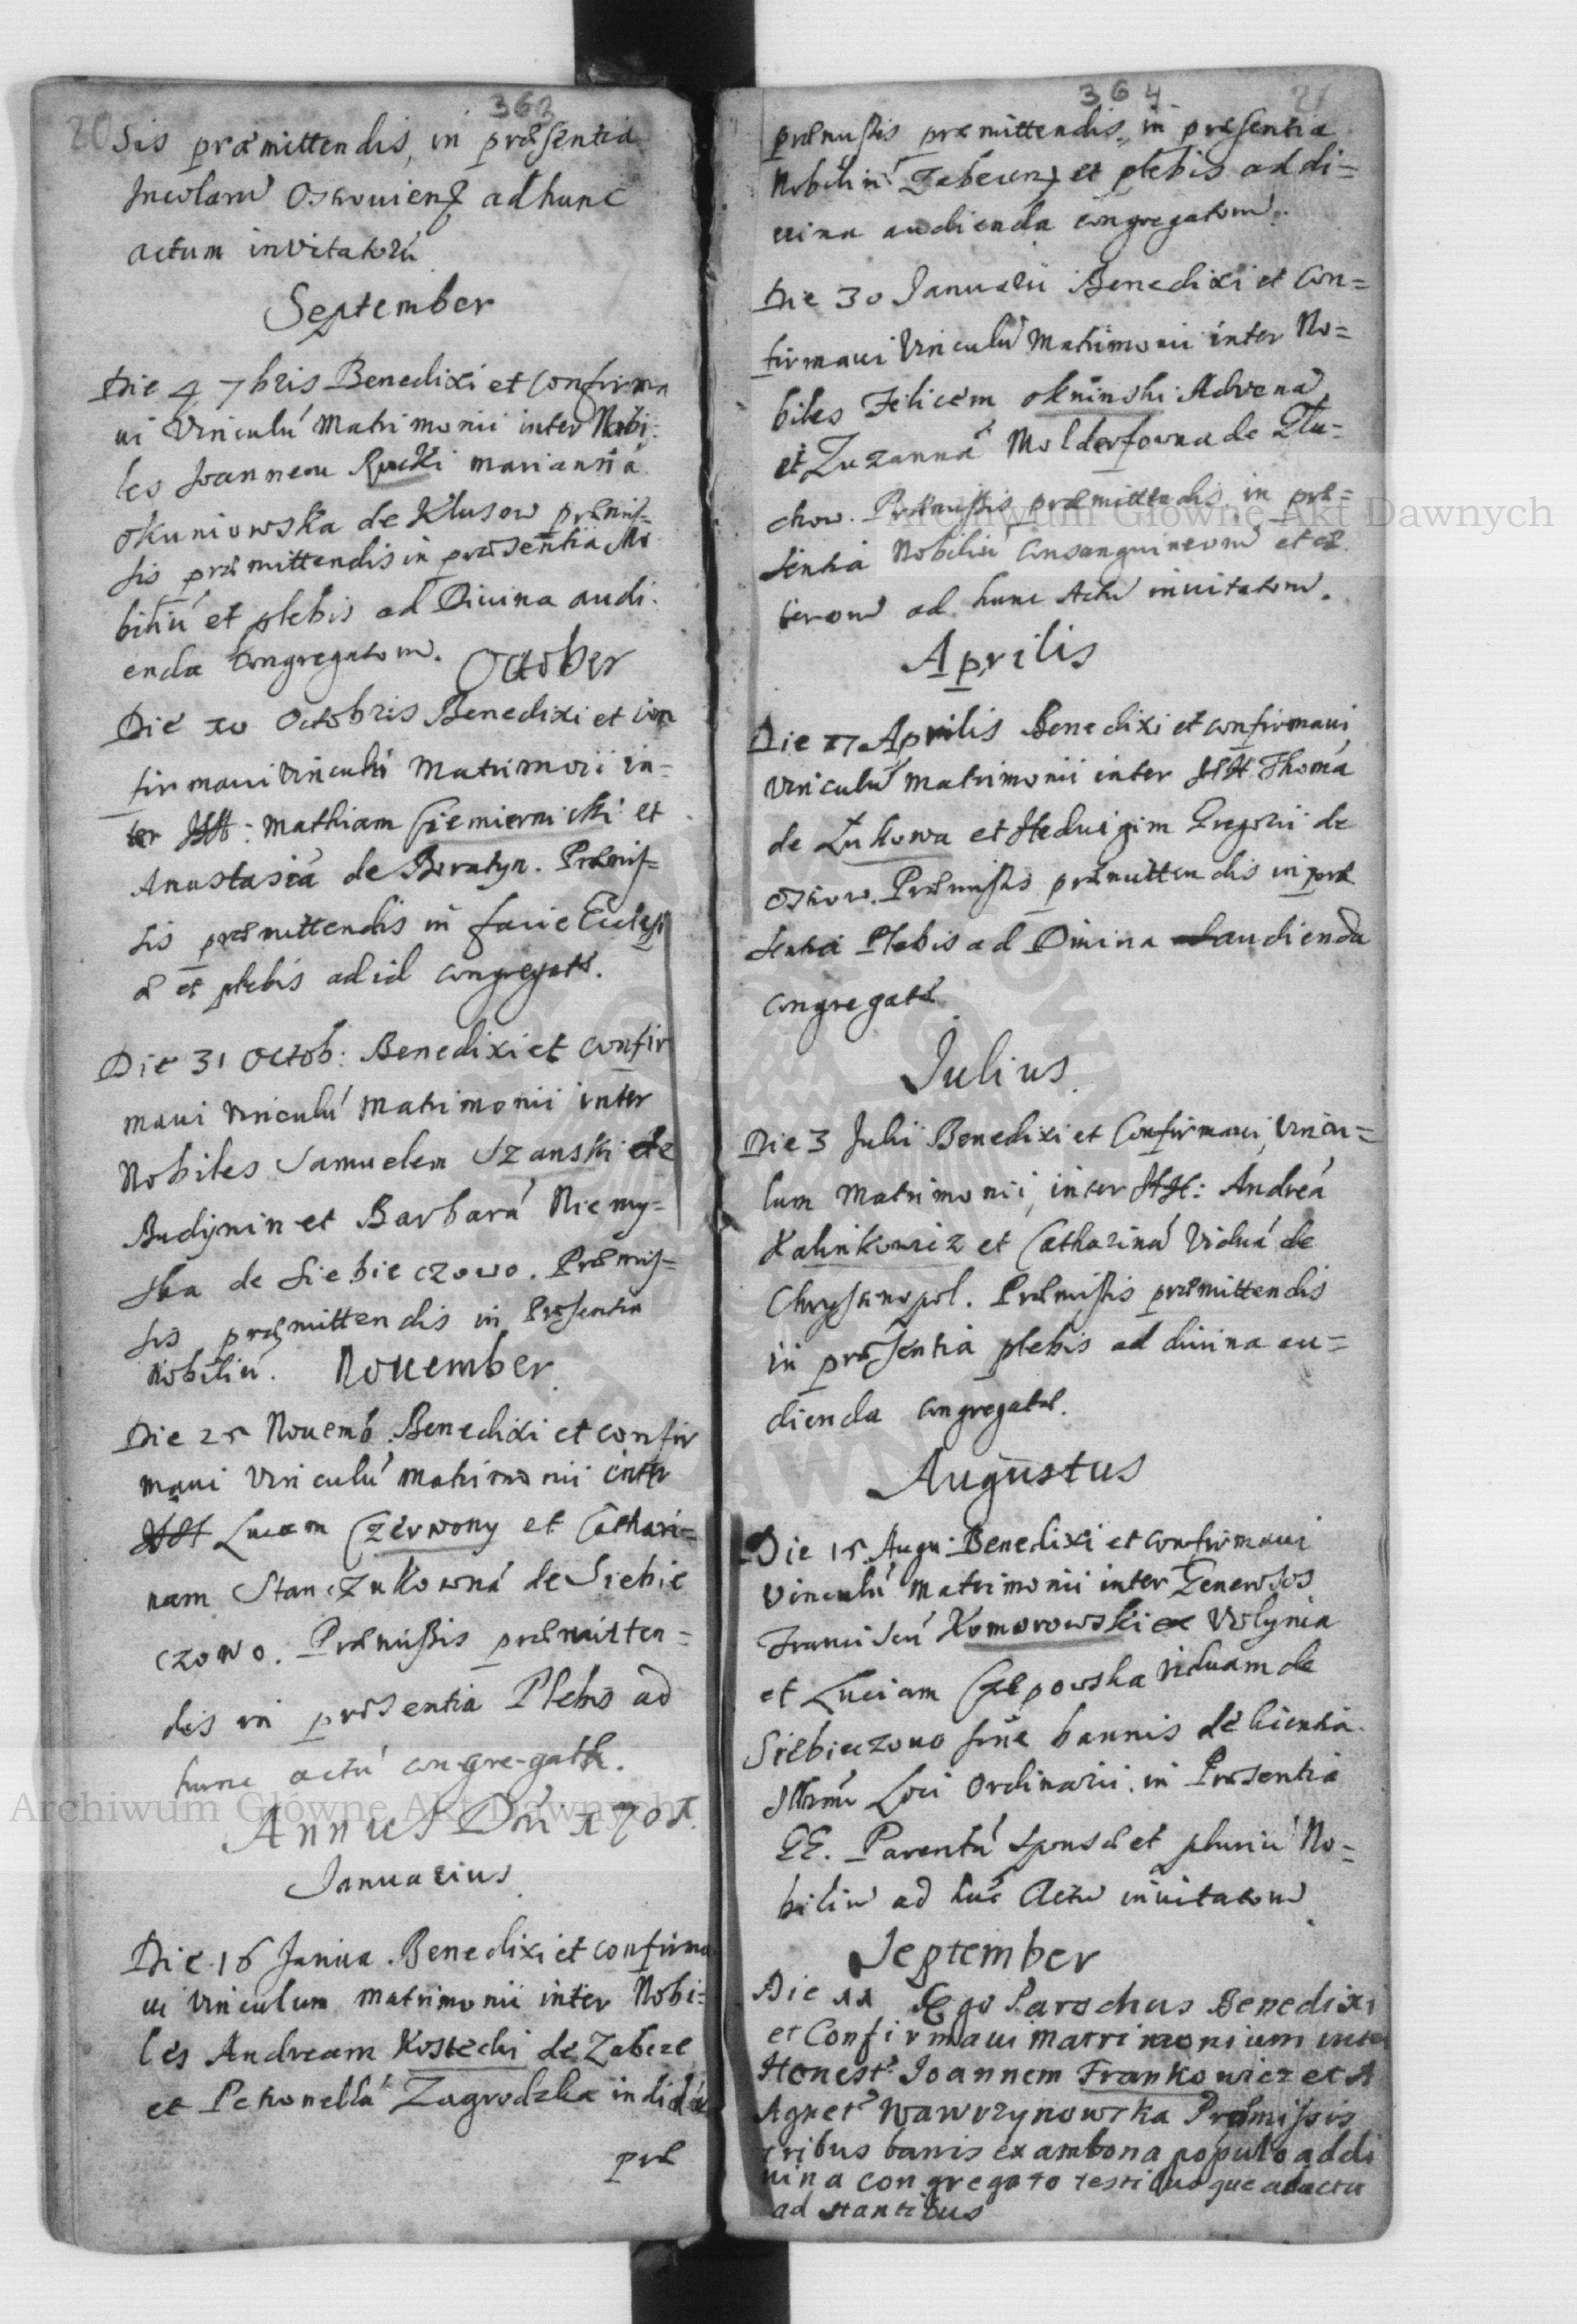 363
20 sis præmittendis, in præsentia
Incolarũ Oskoviens adhunc
actum invitatorũ
September
Die 4 7bris Benedixi et confirma
ui vinculũ Matrimonii inter Nobi:
les Joannem Rucki mariannã
Okuniowska de Klusow præmis-
sis præmittendis in præsentia No
biliũ et plebis ad Diuina audi.
enda congregatorũ.
October
Die 10 Octobris Benedixi et con
firmaui vinculũ Matrimonii in=
ter HH: Mathiam Ciemiernicki et
Anastasiã de Boratyn. Præmis=
sis præmittendis in facie Ecclesi
æ et plebis ad id congregatæ.
Die 31 Octob: Benedixi et confir
maui vinculũ Matrimonii inter
Nobiles Samuelem Szanski de
Budynin et Barbarã Niemy=
ska de Siebieczowo. Præmis=
sis præmittendis in Præsentia
Nobiliũ.
November
Die 25 Nouemb. Benedixi et confir
maui vinculũ matrimonii inter
HH Lucam Czerwony et Cathari=
nam Stanczukownã de Siebie
czowo. Præmissis præmitten=
dis in præsentia Plebis ad
hunc actũ congregatæ.
Annus Dñi 1701.
Januarius
Die 16 Janua. Benedixi et confirma
ui vinculum matrimonii inter Nobi=
les Andream Kostecki de Zabcze
et Petronellã Zagrodzka
præ
364
21
præmissis præmittendis, in præsentia
Nobiliũ Zabcens et plebis ad di=
uina audienda congregatorũ.
Die 30 Januarii Benedixi et Con=
firmaui vinculũ Matrimonii inter No=
biles Felicem Okninski Advenã
et Zuzannã Molderfowna de Tłu=
chow. Præmissis præmittendis, in præ=
sentia Nobiliũ Consanguineorũ et cæ
terorũ ad hunc Actũ inuitatorũ.
Aprilis
Die 17 Aprilis Benedixi et confirmaui
vinculũ Matrimonii inter HH Thomã
de Łukowa et Hedvigim Gregorii de
Oskow. Præmissis præmittendis in præ
sentia Plebis ad Diuina audienda
congregatæ
Julius
Die 3 Julii Benedixi et Confirmaui, vincu=
lum Matrimonii, inter HH: Andreã
Kalinkowicz et Catharinã Viduã de
Chrystinopol. Præmissis præmittendis
in præsentia plebis ad diuina au=
dienda congregatæ.
Augustus
Die 15 Augu: Benedixi et confirmaui
vinculũ matrimonii inter Generosos
Franciscũ Komorowski ex Volynia
et Luciam Czepowska viduam de
Siebieczowo sine bannis de licentia
Illrmi Loci Ordinarii. in Præsentia
GG. Parentũ sponsæ et pluriũ No=
biliũ ad hũc Actũ inuitatorũ
September
Die 11 Ego Parochus Benedixi
et Confirmaui matrimonium inter
Honest: Joannem Frankowicz et A
Agnet: Wawrzynowska Præmissis
tribus bannis ex ambona populo ad di
uina congregato testibusque ad actu
ad stantibus
Archiwum Główne Akt Dawnych
Archiwum Główne Akt Dawnych